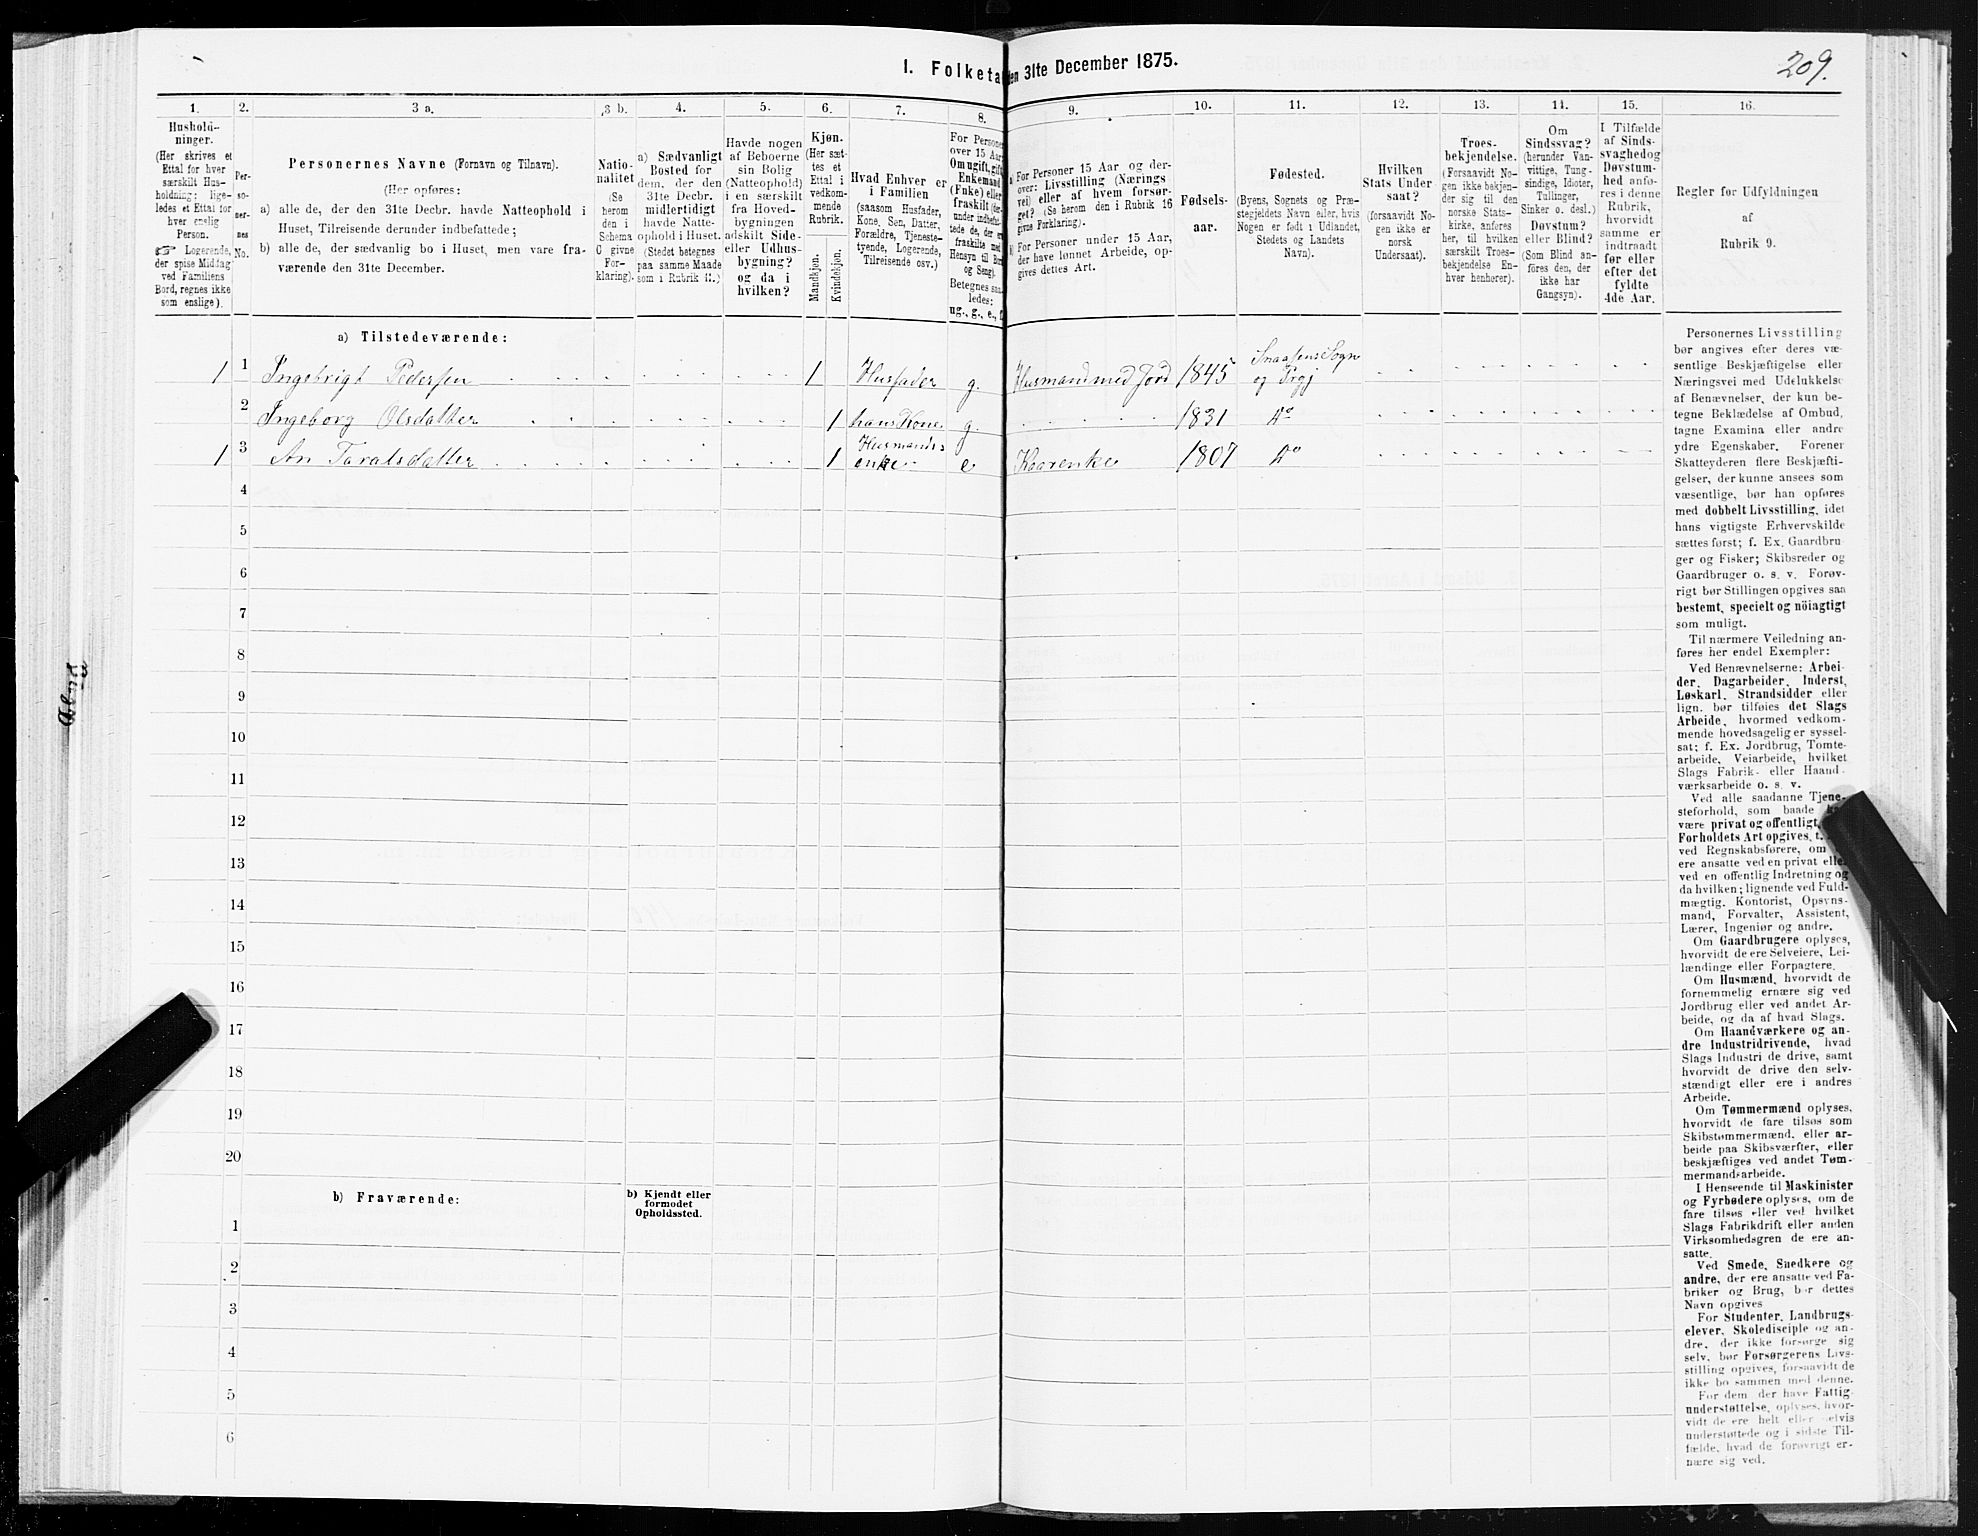 1. Folketa
den 31te December 1875.
209.
1.
2.
3 a.
3 b.
4.
5.
6.
7.
8.
9.
10.
11.
12.
13.
14.
15.
16.
Hushold-
ninger.
(Her skrives et
Ettal for hver
særskilt Hus-
holdning; lige-
ledes et Ettal for
hver enslig
Person.
☞ Logerende,
der spise Middag
ved Familiens
Bord, regnes ikke
som enslige).
Per-
so-
ner-
nes
No.
Personernes Navne (Fornavn og Tilnavn).
(Her opføres:
a) alle de, der den 31te Decbr. havde Natteophold i
Huset, Tilreisende derunder indbefattede;
b) alle de, der sædvanlig bo i Huset, men vare fra-
værende den 31te December.
Natio-
nalitet
(Se
herom
den i
Schema
C givne
For-
klaring).
a) Sædvanligt
Bosted for
dem, der den
31te Decbr.
midlertidigt
havde Natte-
ophold i Huset.
(Stedet betegnes
paa samme Maade
som i Rubrik 11.)
Havde nogen
af Beboerne
sin Bolig
(Natteophold)
i en særskilt
fra Hoved-
bygningen
adskilt Side-
eller Udhus-
bygning?
og da i
hvilken?
Kjøn.
(Her sæt-
tes et
Ettal i
vedkom-
mende
Rubrik.
Mandkjøn.
Kvindekjøn.
Hvad Enhver er
i Familien
(saasom Husfader,
Kone, Søn, Datter,
Forældre, Tjeneste-
tyende, Logerende,
Tilreisende osv.)
For Persone
over 15 Aar
Om ugift, gift
Enkemand
(Enke) eller
fraskilt (der-
under indbefat-
tede de, der er
fraskilte med
Hensyn til Bor
og Seng).
Betegnes saa
ledes:
ug., g., e., f.
a) For Personer 15 Aar og der-
over: Livsstilling (Nærings
vei) eller af hvem forsør-
get? (Se herom den i Rubrik 16
givne Forklaring).
b) For Personer under 15 Aar,
der have lønnet Arbeide, op-
gives dettes Art.
Fødsels-
aar.
Fødested.
(Byens, Sognets og Præ-
stegjeldets Navn eller, hvis
Nogen er født i Udlandet,
Stedets og Landets
Navn).
Hvilken
Stats Under
saat?
(forsaavidt No-
gen ikke er
norsk
Undersaat).
Troes-
bekjendelse.
(Forsaavidt No-
gen ikke bekjen-
der sig til den
norske Stats-
kirke, anføres
her, til hvilken
særskilt Troes-
bekjendelse En-
hver henhører).
Om
Sindssvag?
(herunder Van-
vittige, Tung-
sindige, Idioter,
Tullinger,
Sinker o. desl.)
Døvstum?
eller Blind?
(Som Blind an-
føres den, der
ikke har
Gangsyn).
I Tilfælde
af Sinds-
svaghedog
Døvstum-
hed anfø-
res i denne
Rubrik,
hvorvidt
samme er
indtraadt
før eller
efter det
fyldte
4de Aar.
Regler for Udfyldningen
af
Rubrik 9.
a) Tilstedeværende:
1 1 Ingebrigt Pedersen 1 Husfader g. Husmand med Jord 1845 Snaasens Sogn
og Prgj
2 Ingeborg Olsdatter 1 hans Kone g. 1831 Do
1 3 An Taralsdatter 1 Husmands
enke e Kaarenke 1807 Do
4
5
6
7
8
9
10
11
12
13
14
15
16
17
18
19
20
b) Fraværende:
b) Kjendt eller
formodet
Opholdssted.
1
2
3
4
5
6
Personernes Livsstilling
bør angives efter deres væ-
sentlige Beskjæftigelse eller
Næringsvei med Udelukkelse
af Benævnelser, der kun be-
tegne Beklædelse af Ombud,
tagne Examina eller andre
ydre Egenskaber. Forener
Skatteyderen flere Beskjæfti-
gelser, der kunne ansees som
væsentlige, bør han opføres
med dobbelt Livsstilling, idet
hans vigtigste Erhvervskilde
sættes først; f. Ex. Gaardbru-
ger og Fisker; Skibsreder og
Gaardbruger o. s. v. Forøv-
rigt bør Stillingen opgives saa
bestemt, specielt og nöiagtigt
som muligt.
Til nærmere Veiledning an-
føres her endel Exempler:
Ved Benævnelserne: Arbei-
der, Dagarbeider, Inderst,
Løskarl, Strandsidder eller
lign. bør tilføies det Slags
Arbeide, hvormed vedkom-
mende hovedsagelig er syssel-
sat; f. Ex. Jordbrug, Tomte-
arbeide, Veiarbeide, hvilket
Slags Fabrik- eller Haand-
værksarbeide o. s. v.
Ved alle saadanne Tjene-
steforhold, som baade
være privat og offentligt,
Forholdets Art opgives, t.
ved Regnskabsførere, om
ere ansatte ved en privat eller
ved en offentlig Indretning og
da hvilken; lignende ved Fuld-
mægtig, Kontorist, Opsyns-
mand, Forvalter, Assistent,
Lærer, Ingeniør og andre.
Om Gaardbrugere oplyses,
hvorvidt de ere Selveiere, Lei-
lændinge eller Forpagtere.
Om Husmænd, hvorvidt de
fornemmelig ernære sig ved
Jordbrug eller ved andet Ar-
beide, og da af hvad Slags.
Om Haandværkere og an-
dre Industridrivende, hvad
Slags Industri de drive, samt
hvorvidt de drive den selv-
stændigt eller ere i andres
Arbeide.
Om Tømmermænd oplyses,
hvorvidt de fare tilsøs som
Skibstømmermænd, eller ar-
beide paa Skibsværfter, eller
beskjæftiges ved andet Tøm-
mermandsarbeide.
I Henseende til Maskinister
og Fyrbødere oplyses, om de
fare tilsøs eller ved hvilket
Slags Fabrikdrift eller anden
Virksomhedsgren de ere an-
satte.
Ved Smede, Snedkere og
andre, der ere ansatte ved Fa-
briker og Brug, bør dettes
Navn opgives
For Studenter, Landbrugs-
elever, Skoledisciple og an-
dre, der ikke forsørge sig
selv, bør Forsørgerens Livs-
stilling opgives, forsaavidt de
ikke bo sammen med denne.
For dem der have Fattig-
understøttelse, oplyses, hvor-
vidt de ere helt eller delvis
understøttede og i sidste Til-
fælde, hvad de forøvrigt er-
nære sig ved.